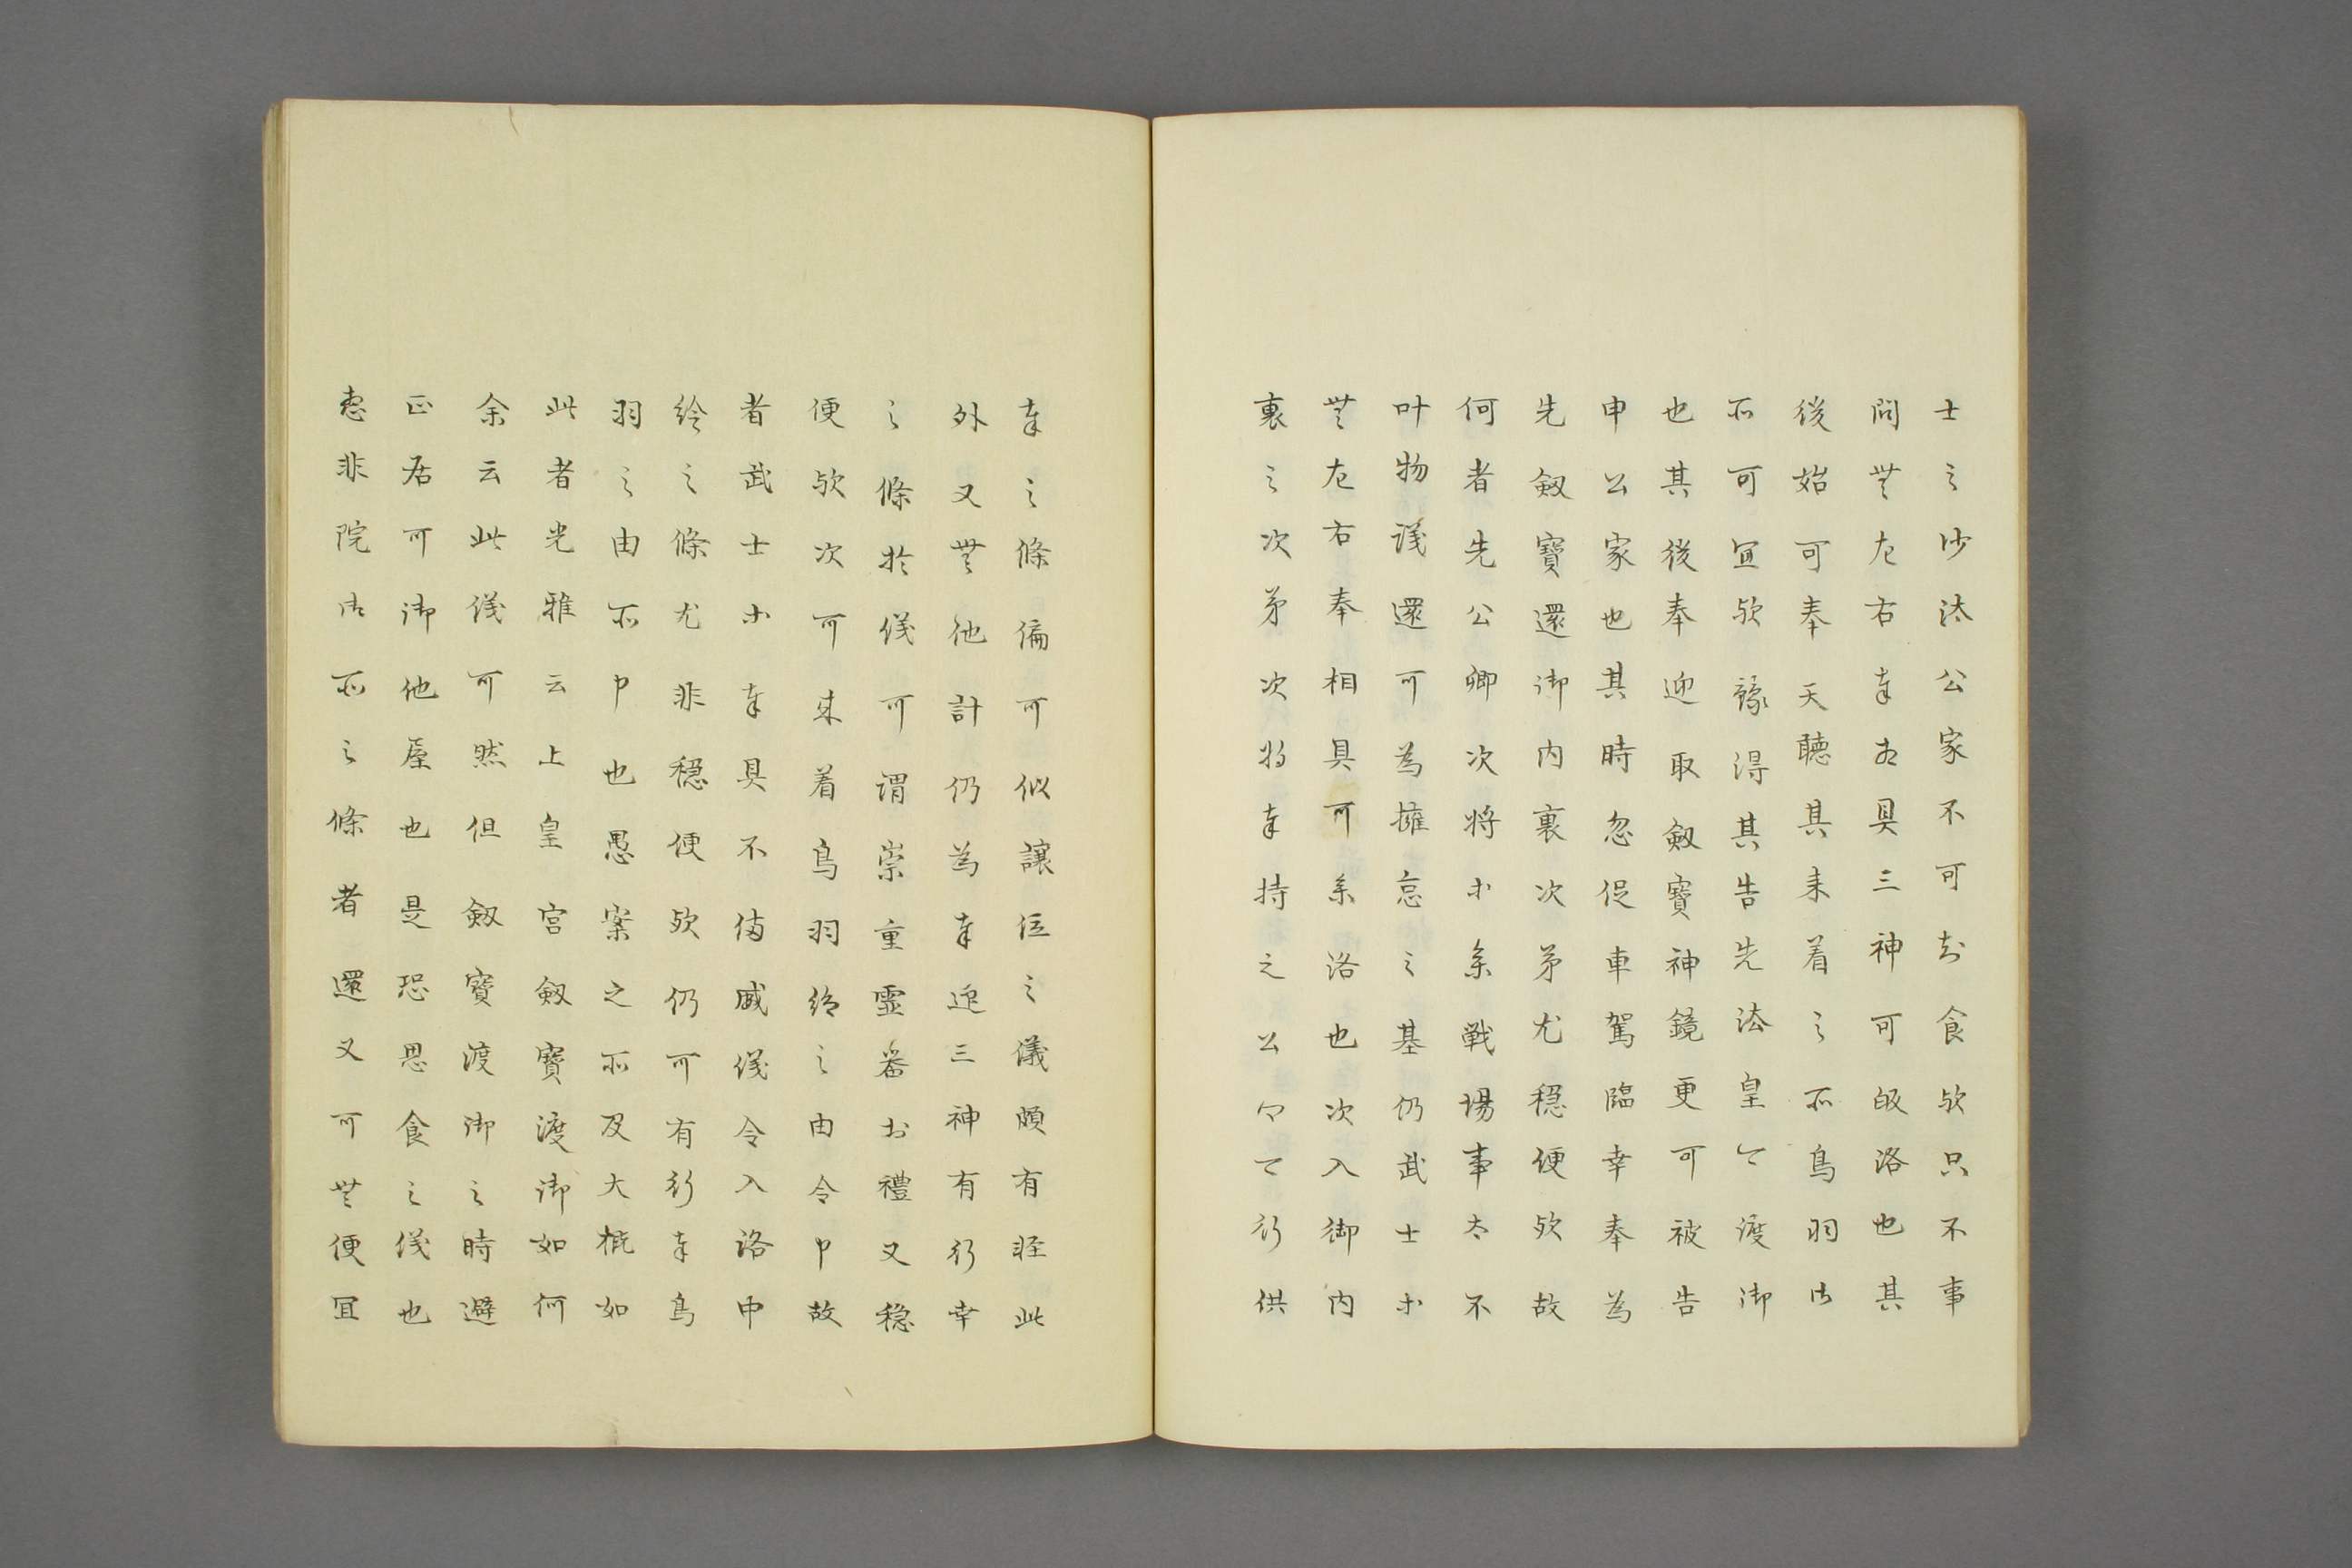 士之沙汰公家不可知食欤只不事
問無左右奉相具三神可皈洛也其
後始可奉天聴其来着之所鳥羽御
所可宜欤豫得其告先法皇令渡御
也其後奉迎取劔寶神鏡更可被告
申公家也其時忽促車駕臨幸奉為
先劔寶還御内裏次第尤穏便欤故
何者先公卿次将等参戦場事太不
叶物議還可為擁怠之基仍武士等
無左右奉相具可参洛也次入御内
裏之次第次将奉持之公卿可行供
奉之條偏可似譲位之儀頗有睚此
外又無他計仍為奉迎三神有行幸
之條於儀可謂崇重霊器出禮又穏
便欤次可来着鳥羽給之由令申故
者武士等奉具不備威儀令入洛中
給之條尤非穏便欤仍可有行幸鳥
羽之由所申也愚案之所及大概如
此者光雅云上皇宮劔寶渡御如何
余云此儀可然但劔寶渡御之時避
正居可御他屋也是恐思食之儀也
惣非院御所之條者還又可無便宜